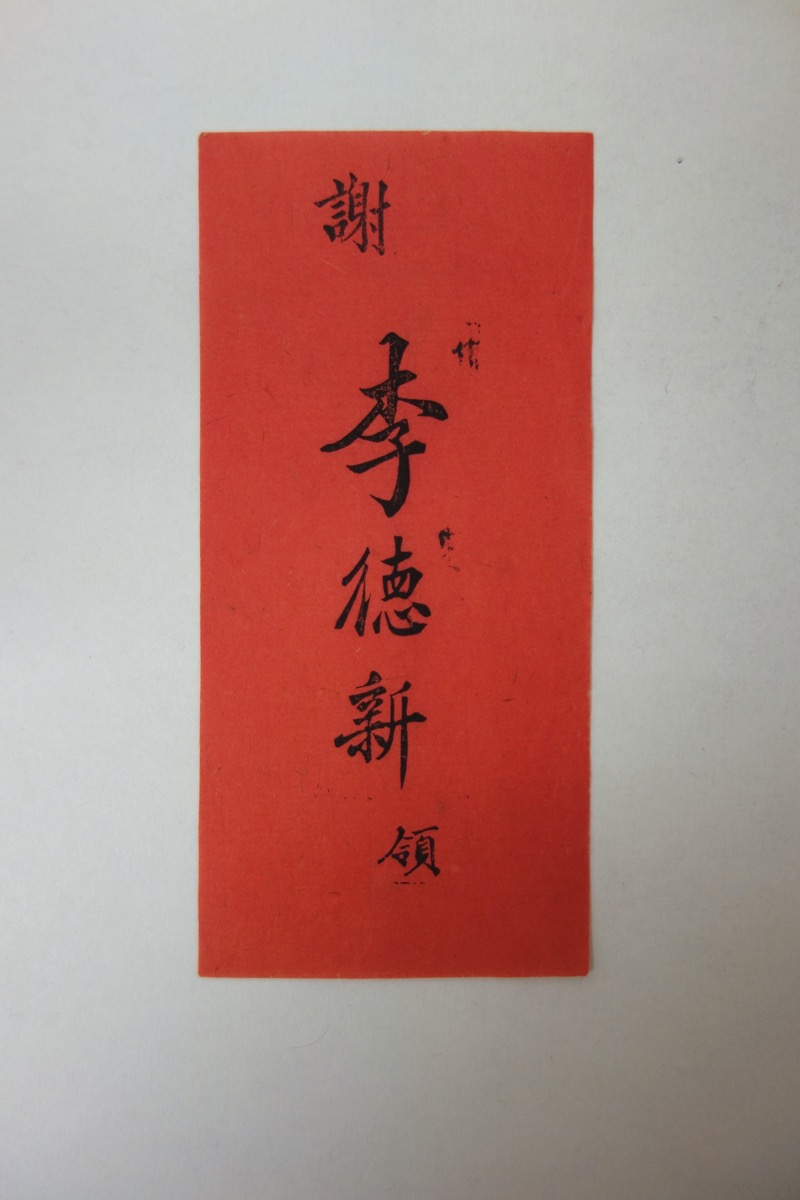 謝
李德新
領